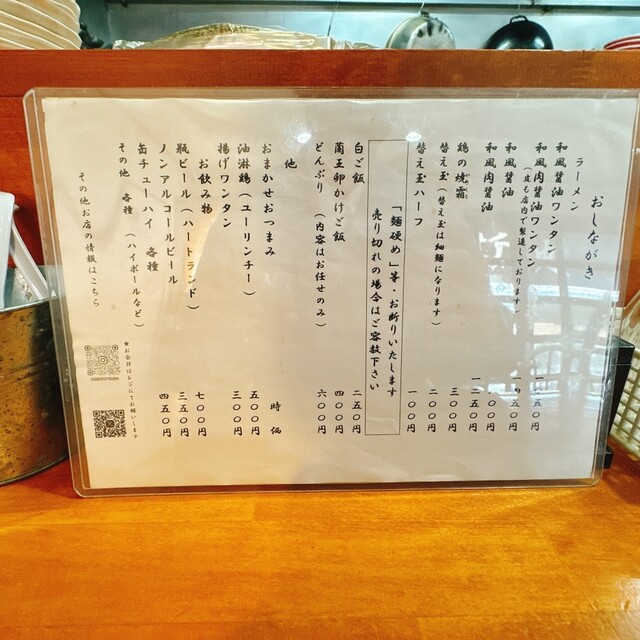 おしながき
ラーメン
和風醤油ワンタン
和風肉醤油ワンタン
(皮も店内で製造しております)
和風醤油
和風肉醤油 一二五〇円
鶏の焼霜 三〇〇円
替え玉(替え玉は細麺になります) 二〇〇円
替え玉ハーフ 一〇〇円
「麺硬め」等・お断りいたします
売り切れの場合はご容赦下さい
白ご飯 二五〇円
蘭王卵かけご飯 四〇〇円
どんぶり (内容はお任せのみ) 六〇〇円
他
おまかせおつまみ 時価
油淋鶏(ユーリンチー) 五〇〇円
揚げワンタン 三〇〇円
お飲み物
瓶ビール(ハートランド) 七〇〇円
ノンアルコールビール 三五〇円
缶チューハイ 各種 四五〇円
その他 各種 (ハイボールなど)
★お会計はレジにてお願いします
その他お店の情報はこちら